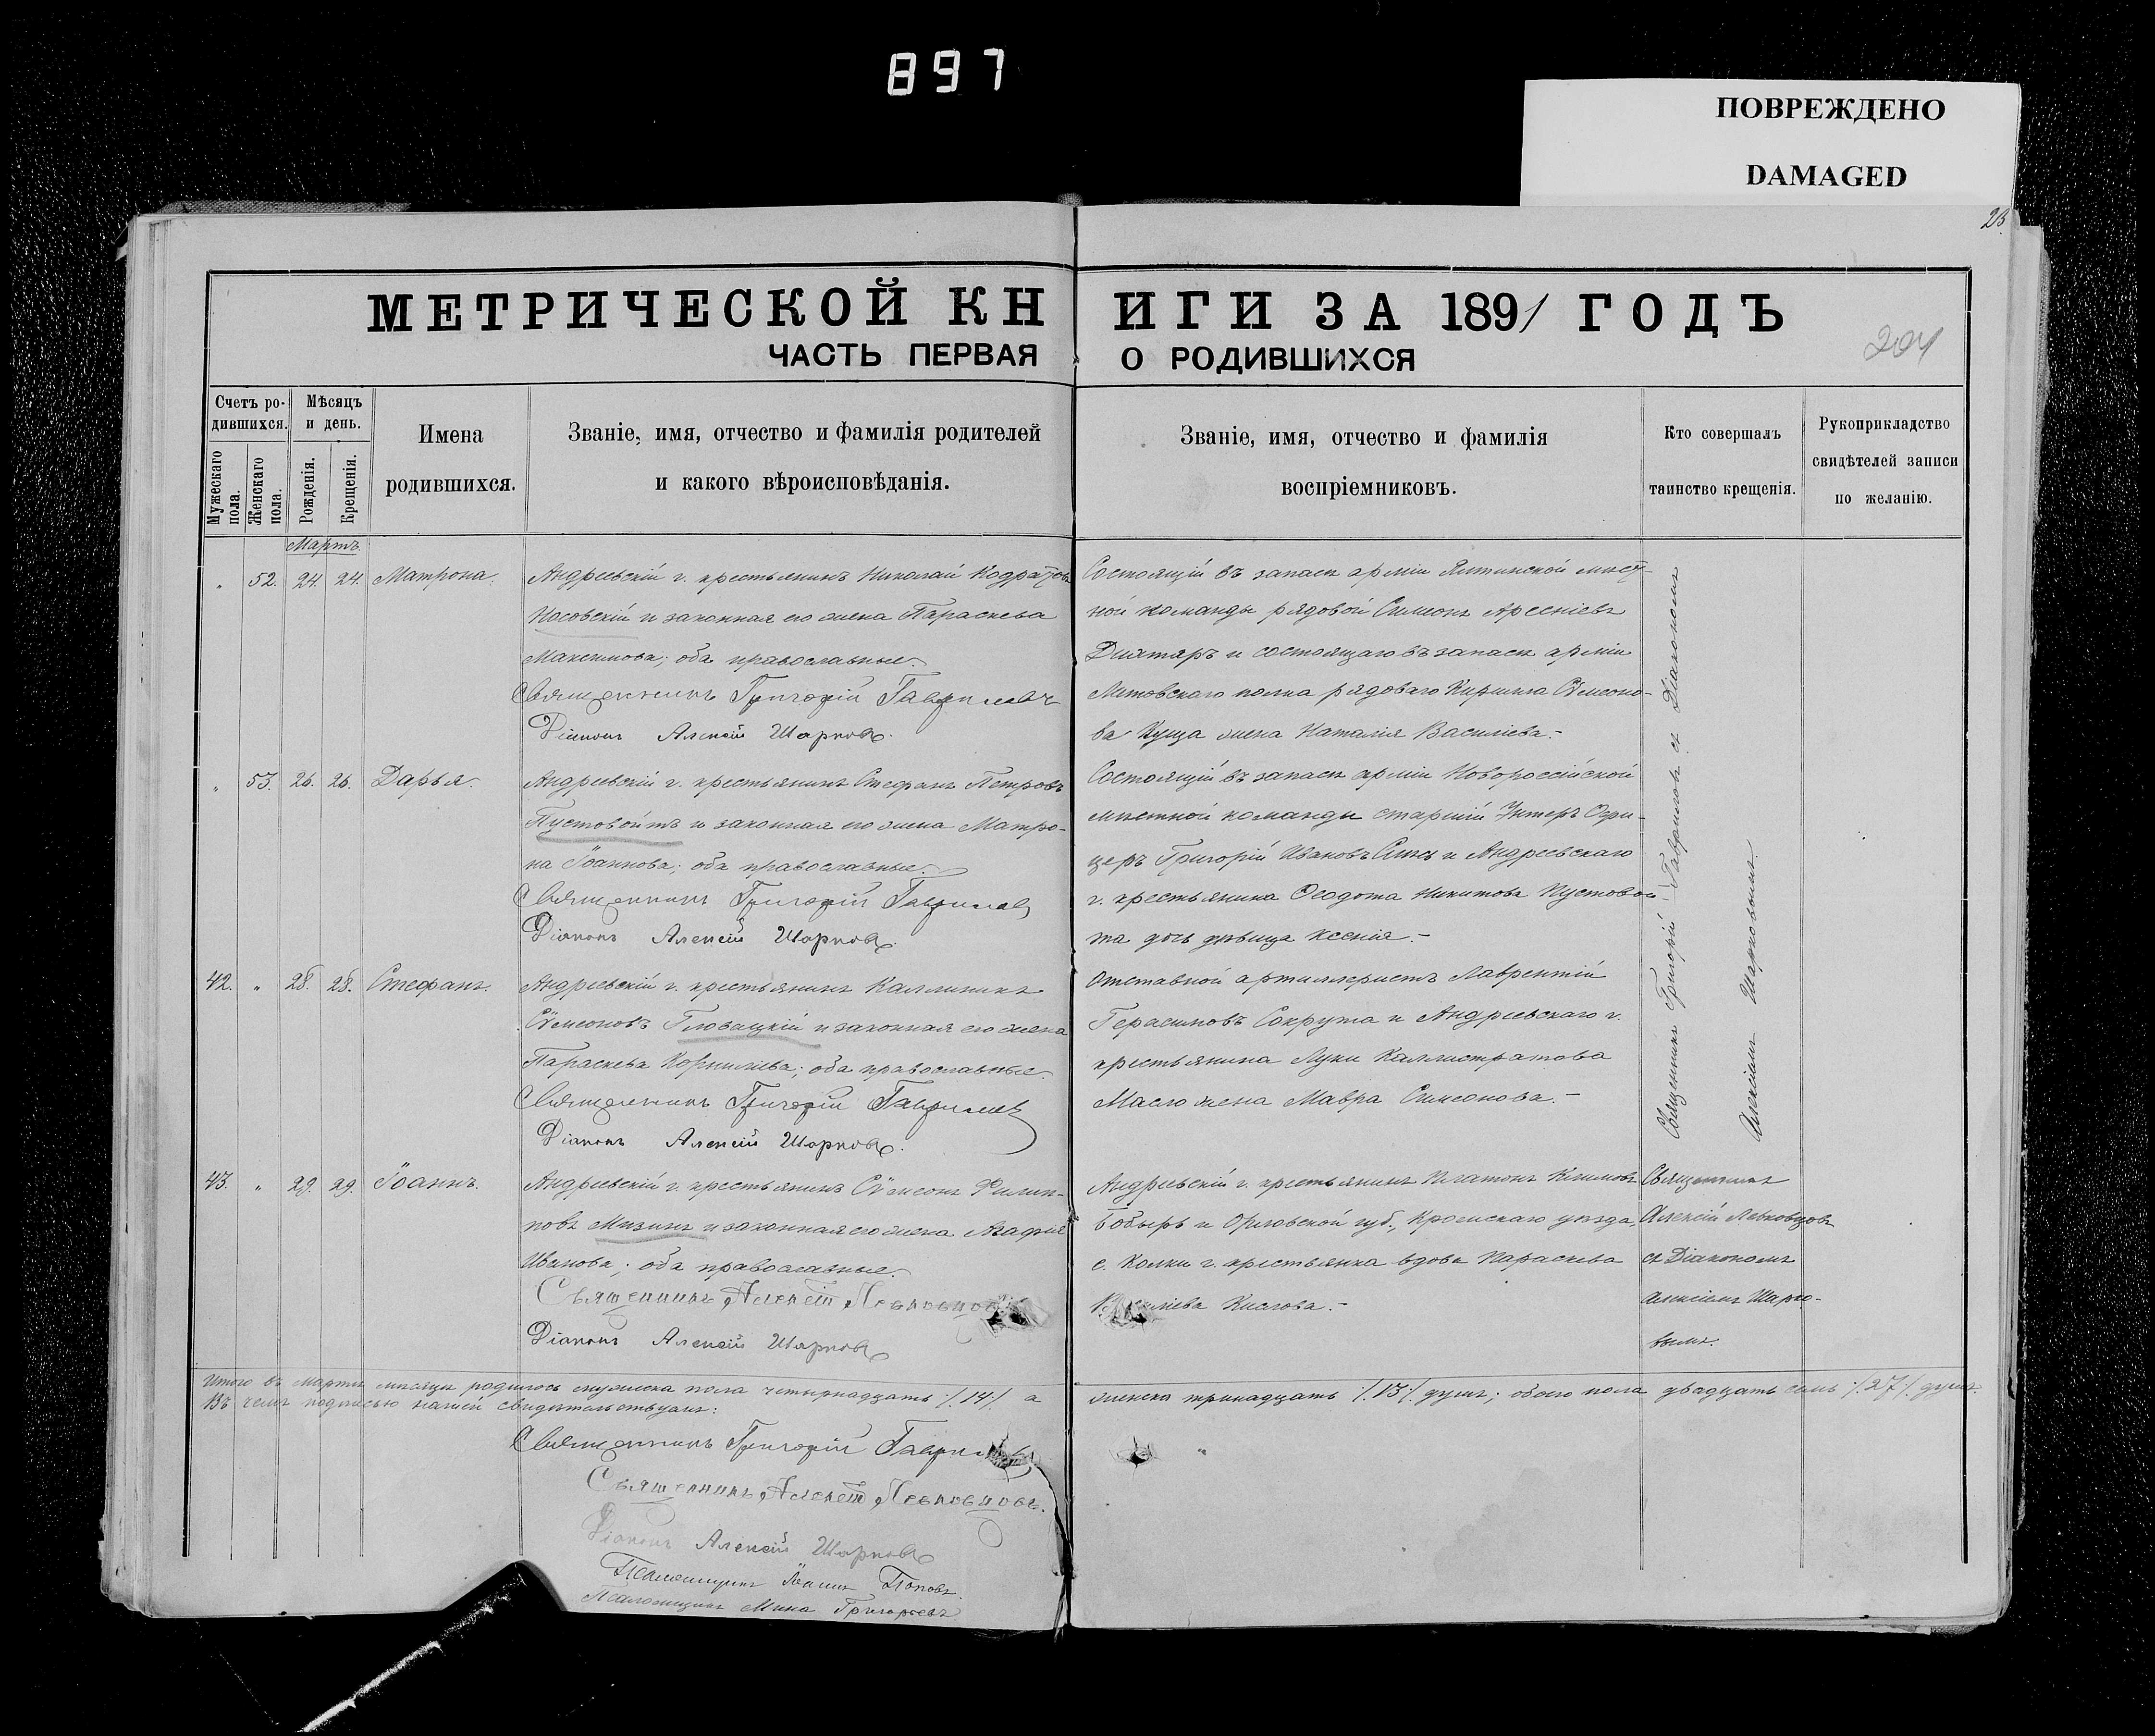 897
ПОВРЕЖДЕНО
DAMAGED
23.
МЕТРИЧЕСКОЙ КНИГИ ЗА 1891 ГОДЪ
204
ЧАСТЬ ПЕРВАЯ О РОДИВШИХСЯ
Счетъ ро-
дившихся.
Мужескаго пола.
Женскаго пола.
Мѣсяцъ
и день.
Рожденія.
Крещенія.
Имена
родившихся.
Званіе, имя, отчество и фамилія родителей
и какого вѣроисповѣданія.
Званіе, имя, отчество и фамилія
воспріемниковъ.
Кто совершалъ
таинство крещенія.
Рукоприкладство
свидѣтелей записи
по желанію.
Мартъ.
" 52. 24. 24. Матрона.
Андреевскій г. крестьянинъ Николай Кодратовъ
Носовскій и законная его жена Параскева
Максимова; оба православные.
Священникъ Григорій Гавриловъ
Діаконъ Алексій Шарковъ.
Состоящій въ запасѣ арміи Ялтинской мѣст-
ной команды рядовой Симеонъ Арсеніевъ
Дихтяръ и состоящаго въ запасѣ арміи
Литовскаго полка рядоваго Кирилла Сѵмеоно-
ва Куща жена Наталія Василіева.-
" 53. 26. 26. Дарья.
Андреевскій г. крестьянинъ Стефанъ Петровъ
Пустовойтъ и законная его жена Матро-
на Іоаннова; оба православные.
Священникъ Григорій Гавриловъ
Діаконъ Алексій Шарковъ.
Состоящій въ запасѣ арміи Новороссійской
мѣстной команды старшій Унтеръ Офи-
церъ Григорій Ивановъ и Андреевскаго
г. крестьянина Ѳеодота Никитова Пустовой-
та дочь дѣвица Ксенія.-
42. " 28. 28. Стефанъ.
Андреевскій г. крестьянинъ Каллиникъ
Сѵмеоновъ Гловацкій и законная его жена
Параскева Корниліева; оба православные.
Священникъ Григорій Гавриловъ
Діаконъ Алексій Шарковъ.
Отставной артиллеристъ Лаврентій
Герасимовъ Сокрута и Андреевскаго г.
крестьянина Луки Каллистратова
Масло жена Мавра Симеонова.-
Священникъ Григорій Гавриловъ съ Діакономъ
Алексіемъ Шарковымъ.
43. " 29. 29. Іоаннъ.
Андреевскій г. крестьянинъ Сѵмеонъ Филип-
повъ Мизинъ и законная его жена Агафія
Иванова; оба православные.
Священникъ Алексій Левковцовъ
Діаконъ Алексій Шарковъ
Андреевскій г. крестьянинъ Платонъ Климовъ
Бобырь и Орловской губ., Кромскаго уѣзда,
с. Колки г. крестьянка вдова Параскева
Василіева Кислова.-
Священникъ
Алексій Левковцовъ
съ Діакономъ
Алексіемъ Шарко-
вымъ.
Итого въ мартѣ мѣсяцѣ родилось мужеска пола четырнадцать /.14/. а женска тринадцать /.13/. душъ; обоего пола двадцать семь /.27/. душъ.
Въ чемъ подписью нашей свидѣтельствуемъ:
Священникъ Григорій Гавриловъ
Священникъ Алексій Левковцовъ.
Діаконъ Алексій Шарковъ
Псаломщикъ Іоаннъ Поповъ
Псаломщикъ Мина Григорьевъ